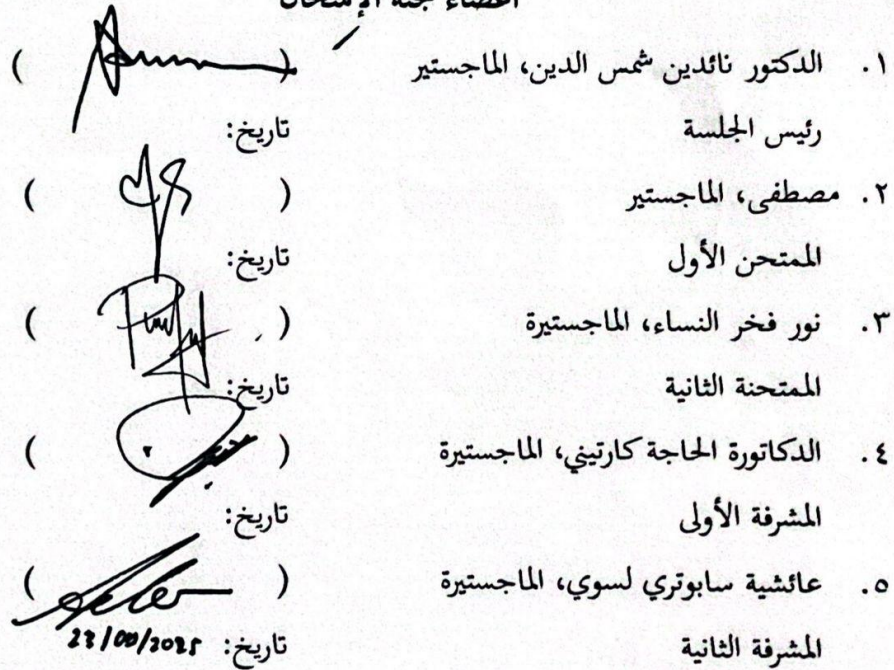 أعضاء لجنة الإمتحان
١. الدكتور نائدين شمس الدين، الماجستير ( )
رئيس الجلسة تاريخ:
٢. مصطفى، الماجستير ( )
الممتحن الأول تاريخ:
٣. نور فخر النساء، الماجستيرة ( )
الممتحنة الثانية تاريخ:
٤. الدكاتورة الحاجة كارتيني، الماجستيرة ( )
المشرفة الأولى تاريخ:
٥. عائشية سابوتري لسوي، الماجستيرة ( )
المشرفة الثانية تاريخ: